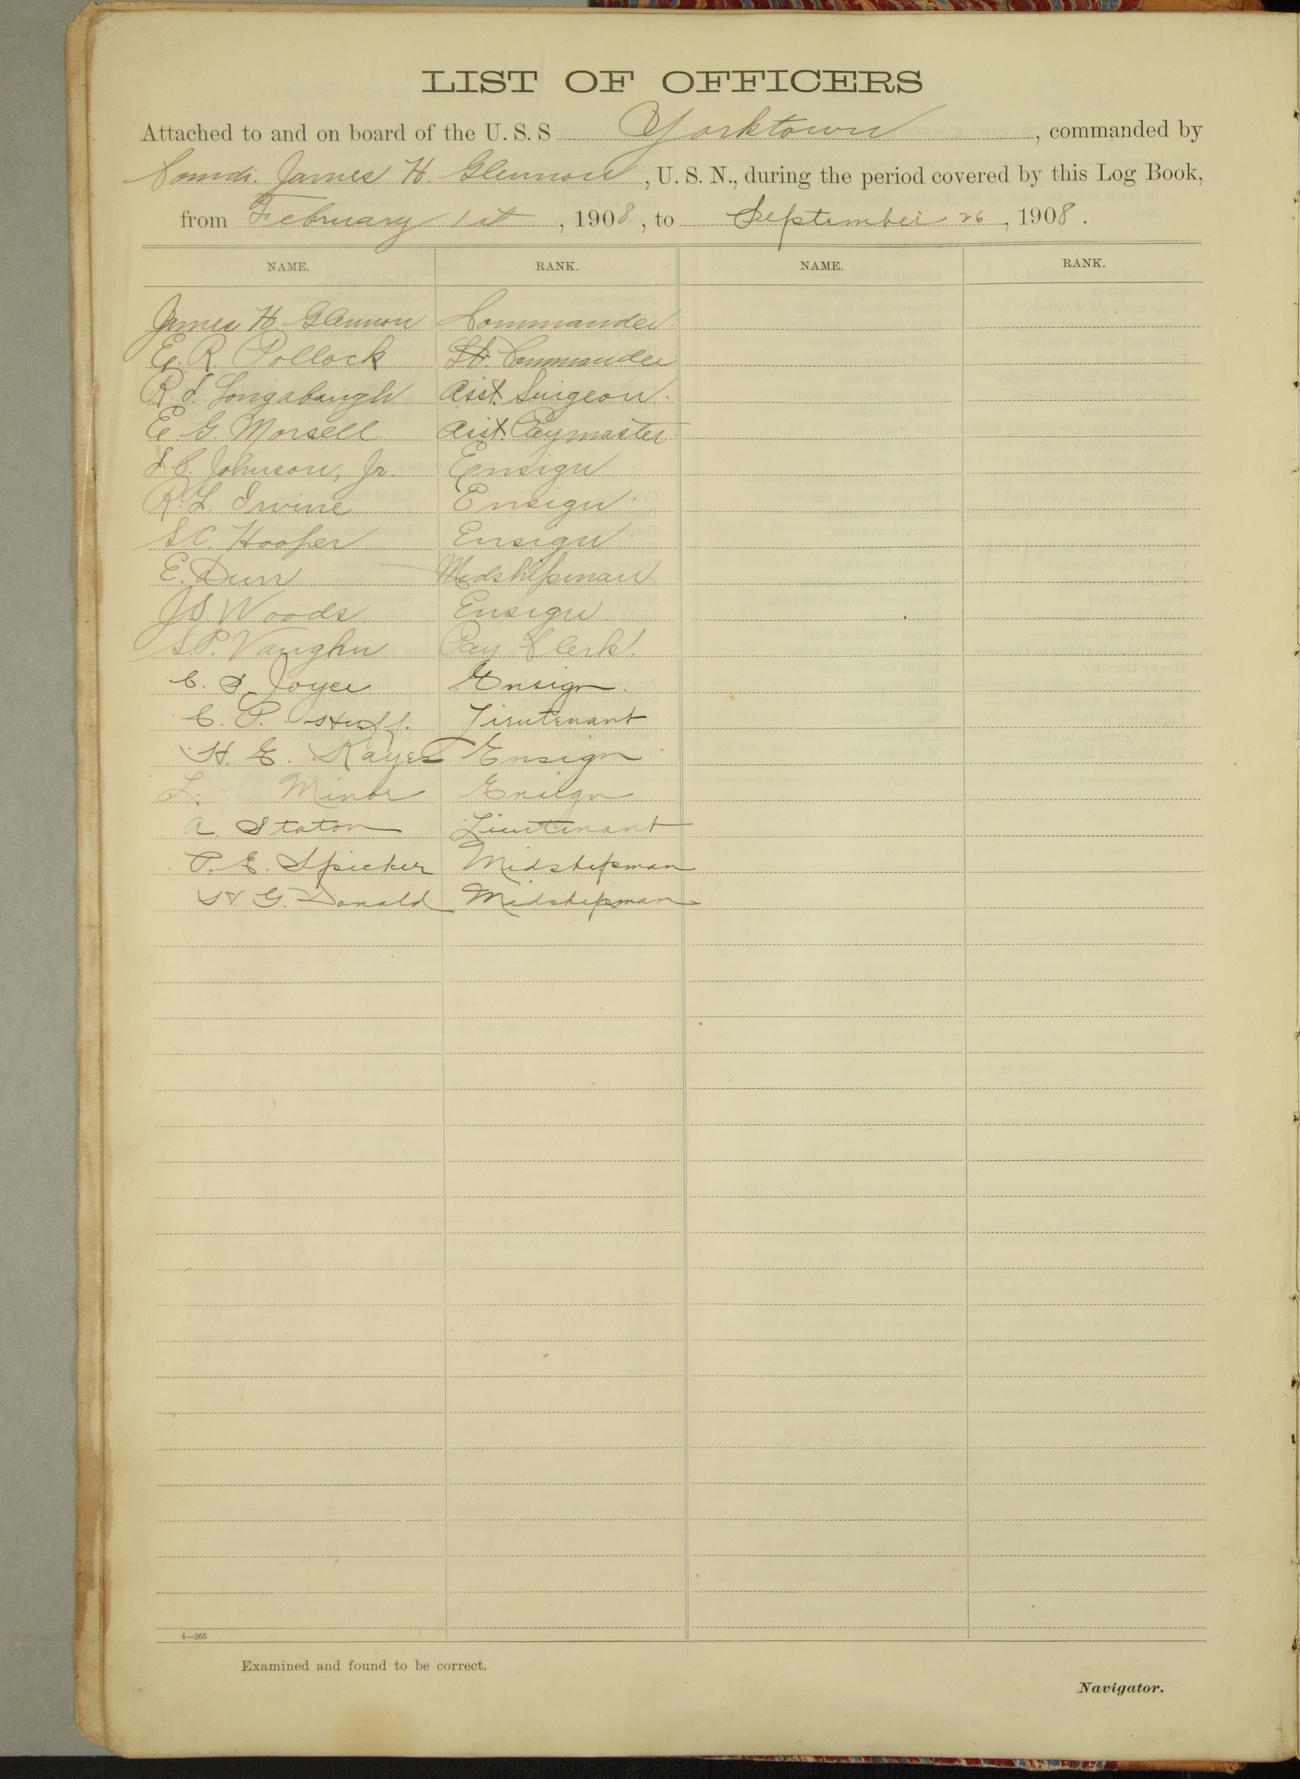 LIST OF OFFICERS
Attached to and on board of the U. S. S Yorktown, commanded by
Comdr. James H. Glennon, U. S. N., during the period covered by this Log Book,
from February 1st, 1908, to September 26, 1908.
NAME. RANK. NAME. RANK.
James H. Glennon Commander.
E. R. Pollock Lt. Commander
R. I. Longabaugh Asst. Surgeon.
E. G. Morsell Asst. Paymaster
I. C. Johnson, Jr. Ensign
R. L. Irvine Ensign
S. C. Hooper Ensign
E. Durr Midshipman
J S Woods Ensign
S P. Vaughn Pay Clerk.
C. S. Joyce Ensign.
C. P. Huff. Lieutenant
H. E. Kays Ensign
L. Minor Ensign
A. Staton Lieutenant
P. E. Speicher Midshipman
W. G. Donald Midshipman
4—265
Examined and found to be correct.
Navigator.